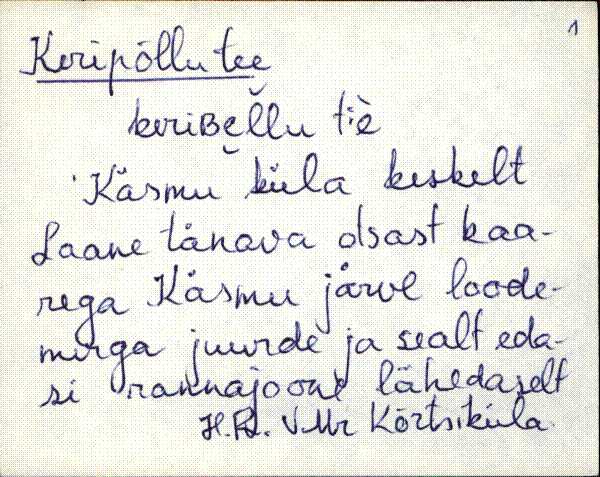 1
Keripõllu tee
keriʙe̮l̆lu tiè
Käsmu küla keskelt
Laane tänava otsast kaa-
rega Käsmu järve loode-
nurga juurde ja sealt eda-
si rannajoone lähedaselt
H.R. VMr Kõrtsiküla.